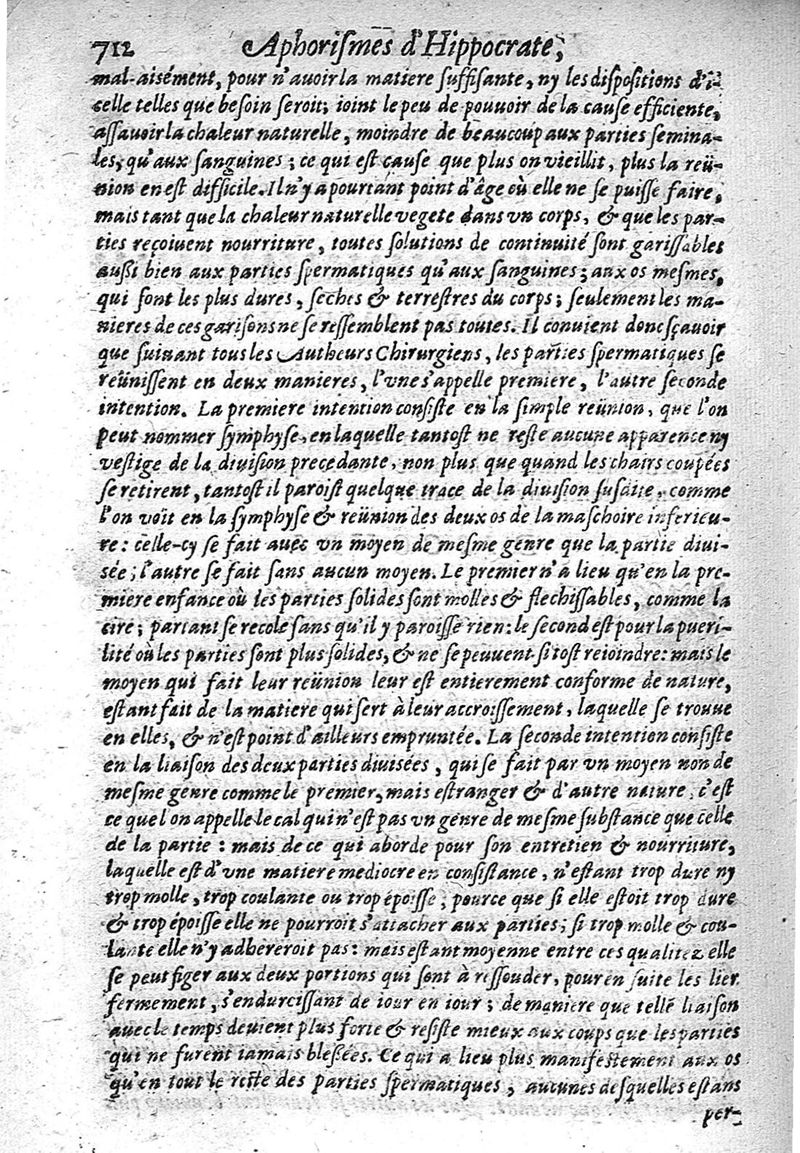 712 Aphorismes d'Hippocrate,
mal-aisément, pour n'auoir la matiere suffisante, ny les dispositions d'i-
celle telles que besoin seroit; ioint le peu de pouuoir de la cause efficiente,
assauoir la chaleur naturelle, moindre de beaucoup aux parties semina-
les, qu'aux sanguines; ce qui est cause que plus on vieillit, plus la reü-
nion en est difficile. Il n'y a pourtant point d'âge où elle ne se puisse faire,
mais tant que la chaleur naturelle vegete dans vn corps, & que les par-
ties reçoiuent nourriture, toutes solutions de continuité sont garissables
aussi bien aux parties spermatiques qu'aux sanguines; aux os mesmes,
qui sont les plus dures, seches & terrestres du corps; seulement les ma-
nieres de ces garisons ne se ressemblent pas toutes. Il conuient donc sçauoir
que suiuant tous les Autheurs Chirurgiens, les parties spermatiques se
reünissent en deux manieres, l'vne s'appelle premiere, l'autre seconde
intention. La premiere intention consiste en la simple reünion, que l'on
peut nommer symphyse, en laquelle tantost ne reste aucune apparence ny
vestige de la diuision precedante, non plus que quand les chairs coupées
se retirent, tantost il paroist quelque trace de la diuision susdite, comme
l'on voit en la symphyse & reünion des deux os de la maschoire inferieu-
re: celle-cy se fait auec vn moyen de mesme genre que la partie diui-
sée; l'autre se fait sans aucun moyen. Le premier n'a lieu qu'en la pre-
miere enfance où les parties solides sont molles & flechissables, comme la
cire; partant se recole sans qu'il y paroisse rien: le second est pour la pueri-
lité où les parties sont plus solides, & ne se peuuent si tost reioindre: mais le
moyen qui fait leur reünion leur est entierement conforme de nature,
estant fait de la matiere qui sert à leur accroissement, laquelle se trouue
en elles, & n'est point d'ailleurs empruntée. La seconde intention consiste
en la liaison des deux parties diuisées, qui se fait par vn moyen non de
mesme genre comme le premier, mais estranger & d'autre nature, c'est
ce que l'on appelle le cal qui n'est pas vn genre de mesme substance que celle
de la partie: mais de ce qui aborde pour son entretien & nourriture,
laquelle est d'vne matiere mediocre en consistance, n'estant trop dure ny
trop molle, trop coulante ou trop époisse; pource que si elle estoit trop dure
& trop époisse elle ne pourroit s'attacher aux parties; si trop molle & cou-
lante elle n'y adhereroit pas: mais estant moyenne entre ces qualitez elle
se peut figer aux deux portions qui sont à ressouder, pour en suite les lier
fermement, s'endurcissant de iour en iour; de maniere que telle liaison
auec le temps deuient plus forte & resiste mieux aux coups que les parties
qui ne furent iamais blessées. Ce qui a lieu plus manifestement aux os
qu'en tout le reste des parties spermatiques, aucunes desquelles estans
per-